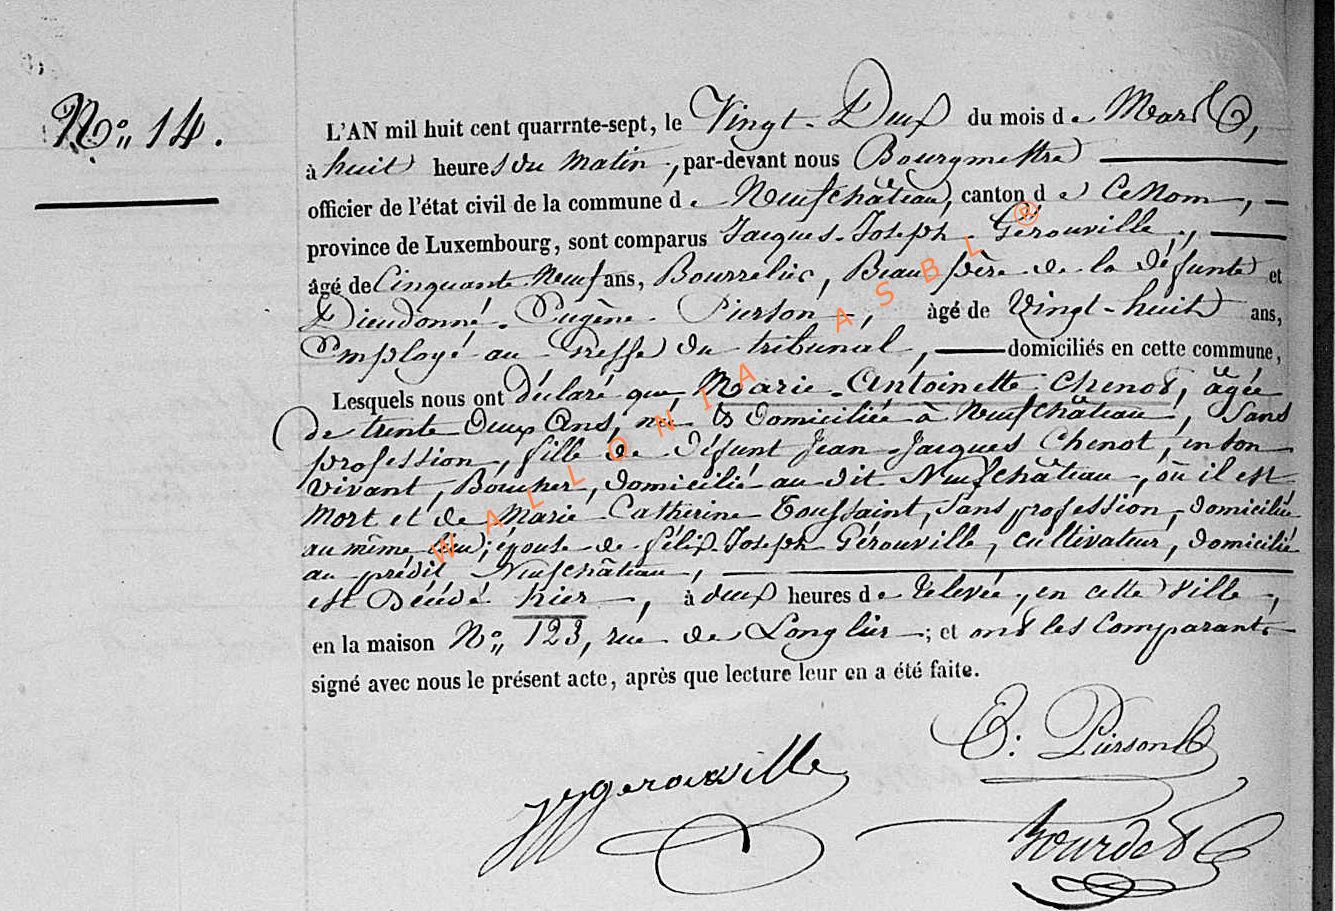 No. 14.
L'AN mil huit cent quarrnte-sept, le Vingt-Deux du mois de Mars,
à huit heures du matin, par-devant nous Bourgmestre
officier de l'état civil de la commune de Neufchâteau, canton de Ce Nom,
province de Luxembourg, sont comparus Jacques-Joseph Gérouville,
âgé de Cinquante Neuf ans, Bourrelier, Beau père de la défunte et
Dieudonné-Eugène Pierson, âgé de Vingt-huit ans,
Employé au Greffe du tribunal, domiciliés en cette commune,
Lesquels nous ont déclaré que Marie-Antoinette Chenot, âgée
de trente deux ans, née & domiciliée à Neufchâteau, sans
profession, fille de défunt Jean-Jacques Chenot, en son
vivant, Boucher, domicilié au dit Neufchâteau, où il est
mort et de Marie Catherine Toussaint, sans profession, domiciliée
au même lieu; épouse de Félix Joseph Gérouville, cultivateur, domicilié
au prédit Neufchâteau,
est décédé hier, à deux heures de relevée, en cette ville,
en la maison No. 123, rue de Longlier; et ont les Comparants
signé avec nous le présent acte, après que lecture leur en a été faite.
E: Pierson
JJgerouville
Bourdet
WALLONIA ASBL ®